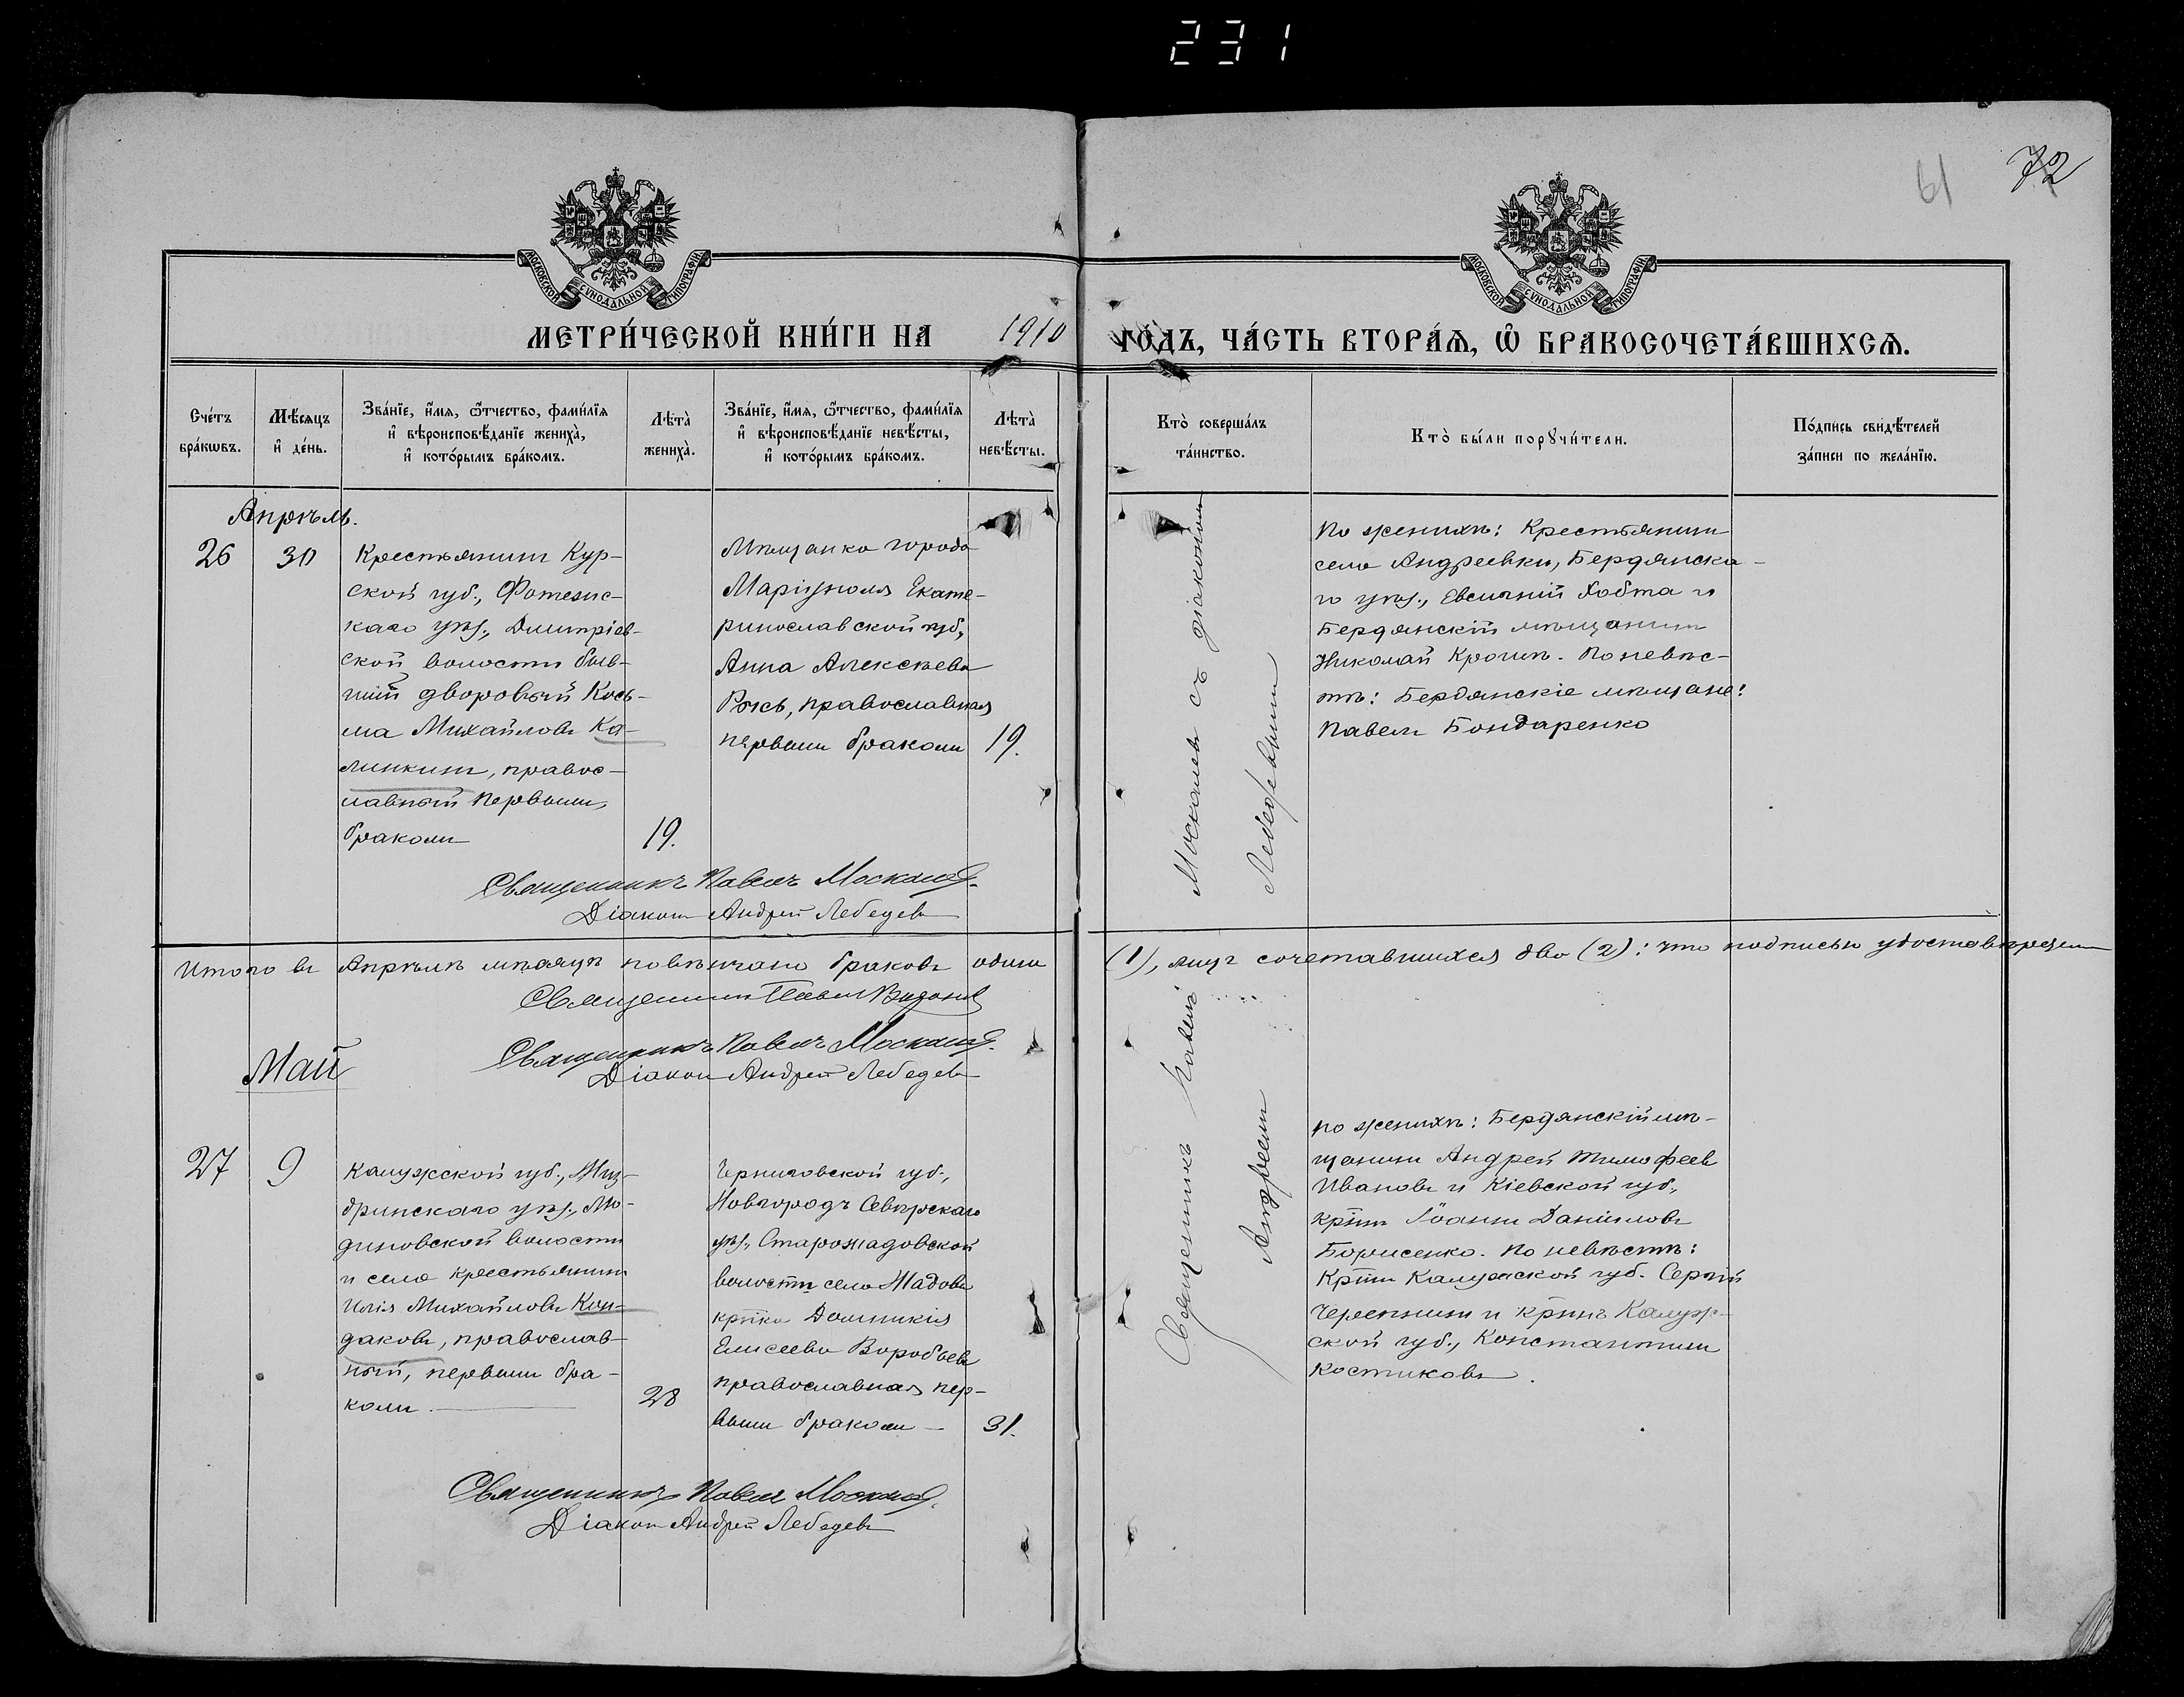 231
61
72
МОСКОВСКОЙ СѴНОДАЛЬНОЙ ТИПОГРАФІИ
МОСКОВСКОЙ СѴНОДАЛЬНОЙ ТИПОГРАФІИ
МЕТРИ́ЧЕСКОЙ КНИ́ГИ НА 1910 ГО́ДЪ, ЧА́СТЬ ВТОРА́Ѧ, Ѽ БРАКОСОЧЕТА́ВШИХСѦ.
Сче́тъ
бра́кѡвъ.
Мѣ́сяцъ
и҆ де́нь.
Зва́нїе, и҆́мѧ, ѻ҆́тчество, фами́лїѧ
и҆ вѣроисповѣ́данїе жениха̀,
и҆ кото́рымъ бра́комъ.
Лѣта̀
жениха̀.
Зва́нїе, и҆́мѧ, ѻ҆́тчество, фами́лїѧ
и҆ вѣроисповѣ́данїе невѣ́сты,
и҆ кото́рымъ бра́комъ.
Лѣта̀
невѣ́сты.
Кто̀ соверша́лъ
та́инство.
Кто̀ бы́ли порꙋчи́тели.
По́дпись свидѣ́телей
за́писи по жела́нїю.
Апрѣль.
26
30
Крестьянинъ Кур-
ской губ., Фатежс-
каго уѣз., Дмитріев-
ской волости быв-
шій дворовый Кось-
ма Михайловъ Ка-
линкинъ, правос-
лавный первымъ
бракомъ
19.
Мѣщанка города
Маріуполя Екате-
ринославской губ.,
Анна Алексѣева
православная
первымъ бракомъ
19.
Священникъ Павелъ Москалевъ съ діакономъ
Андреемъ Лебедевымъ
По женихѣ: Крестьянинъ
села Андреевки, Бердянска-
го уѣз., Евсигній Хобта и
Бердянскій мѣщанинъ
Николай По невѣс-
тѣ: Бердянскіе мѣщане:
Павелъ Бондаренко
Священникъ Павелъ Москалевъ.
Діаконъ Андрей Лебедевъ
Итого въ Апрѣлѣ мѣсяцѣ повѣнчано браковъ одинъ (1), лицъ сочетавшихся два (2): что подписью удостовѣряемъ
Священникъ Павелъ
Священникъ Павелъ Москалевъ.
Діаконъ Андрей Лебедевъ
Май
27
9
Калужской губ., Жиз-
дринскаго уѣз., Лю-
диновской волости
и села крестьянинъ
Илія Михайловъ Кон-
даковъ, православ-
ный, первымъ бра-
комъ.
28
Черниговской губ.,
Новгородъ Сѣверскаго
уѣз., Старожадовской
волости села Жадова
крт̃ка Домникія
Елисеева Воробьева
православная пер-
вымъ бракомъ
31.
по женихѣ: Бердянскій мѣ-
щанинъ Андрей Тимофеевъ
Ивановъ и Кіевской губ.,
крт̃нъ Іоаннъ Даниловъ
Борисенко. По невѣстѣ:
Крт̃нъ Калужской губ. Сергій
и крт̃нъ Калуж-
ской губ., Константинъ
Костиковъ.
Священникъ Павелъ Москалевъ.
Діаконъ Андрей Лебедевъ